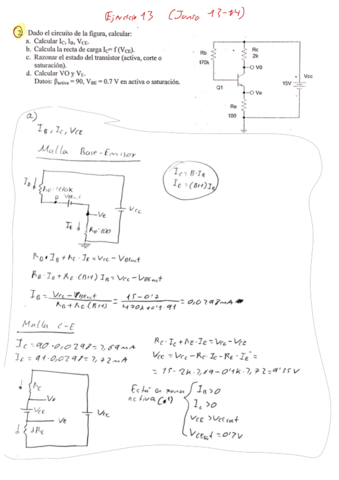 Ejercicio 13 (Junio 13-14)
2) Dado el circuito de la figura, calcular:
a. Calcular IC, IB, VCE.
b. Calcula la recta de carga IC= f (VCE).
c. Razonar el estado del transistor (activa, corte o saturación).
d. Calcular VO y VE.
Datos: βactiva = 90, VBE = 0.7 V en activa o saturación.
Rb
170k
Rc
2k
V0
Q1
Ve
Re
100
Vcc
15V
a)
IB, IC, VCE
Malla Base-Emisor
IC = B·IB
IE = (B+1)IB
IB
VE
IE
RE=100
VCC
RB·IB + RE·IE = VCC - VBEact
RB·IB + RE·(B+1) IB = VCC - VBEact
IB = VCC - VBEact / RB + RE(B+1) = 15-0'7 / = 0,0798 mA
Malla C-E
IC = 90·0,0798 =
IE = 91·0,0798 =
RC·IC + RE·IE = VCC - VCE
VCE = VCC - RC·IC - RE·IE =
RC
Vo
VCE
VE
RE
VCC
Está en zona activa
IB>0
IC>0
VCE > VCEsat